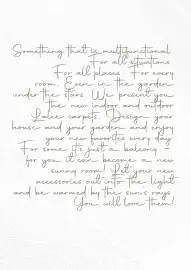 Something that is multifunctional
For all situations
For all places. For every
room. Even in the garden
under the stars. We present you
the new indoor and outdoor
Lalee carpets. Design your
house and your garden and enjoy
your new favorites every day.
For some it's just a balcony -
for you it can become a new
sunny room! Let your new
accessories out into the light
and be warmed by the sun's rays.
You will love them!